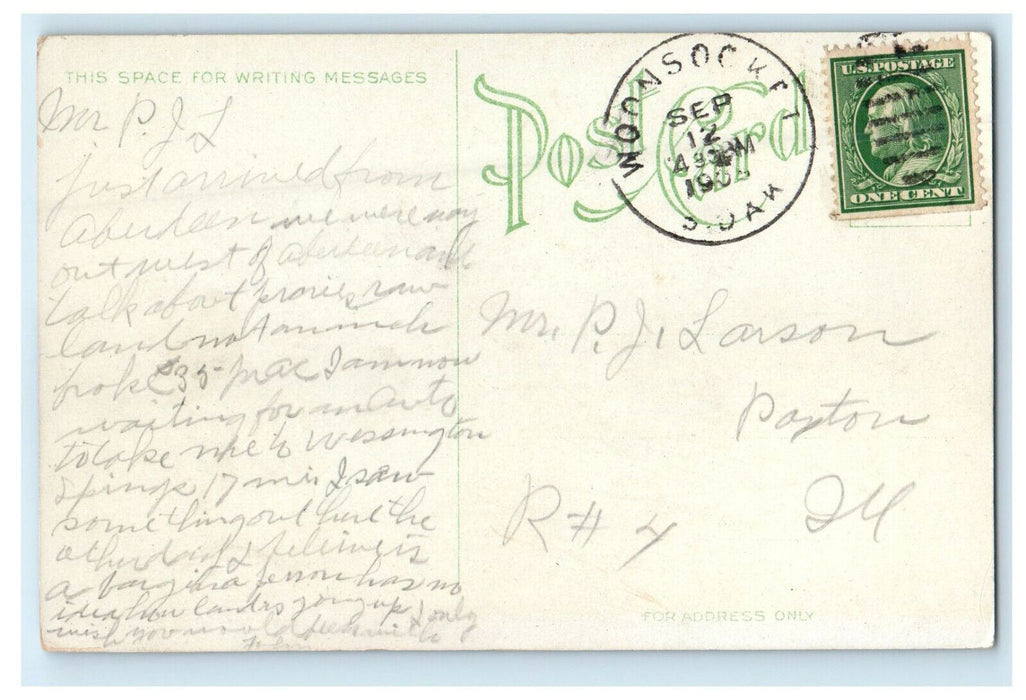 THIS SPACE FOR WRITING MESSAGES
Post Card
WOONSOCKET
SEP
12
S. DAK
U.S. POSTAGE
ONE CENT
Mr P. J L
just arrived from
Aberdeen we were way
out west of Aberdeen and
talk about praries raw
land not an inch
broke $35 per ac I am now
waiting for an auto
to take me to Wessington
Springs 17 mi. I saw
something out here the
other day I beleive is
a bargin a person has no
idea how land is going up I only
wish you would been with
Mr. P. J. Larson
Paxton
R # 4 Ill
FOR ADDRESS ONLY